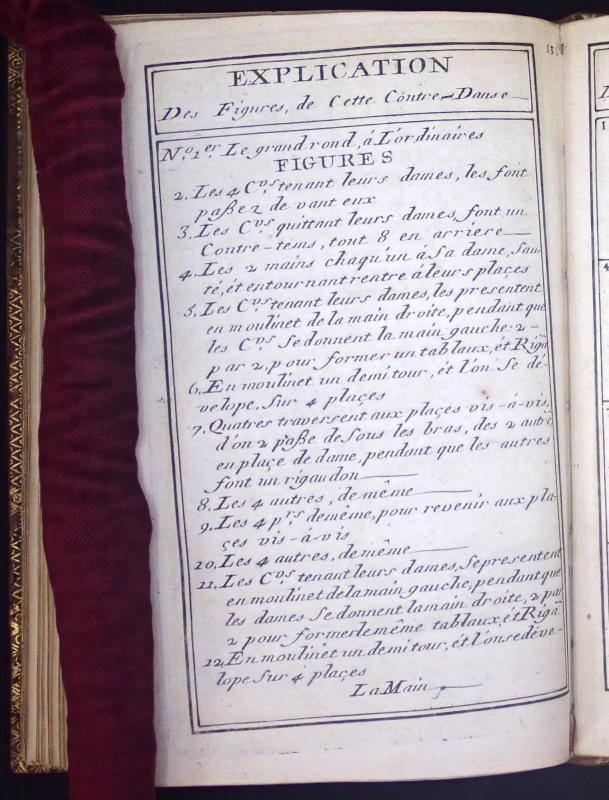 EXPLICATION
Des Figures, de Cette Contre-Danse
N.o 1.er Le grand rond, á L'ordinaires
FIGURES
2. Les 4 C.vs tenant leurs dames, les font
paßez de vant eux
3. Les C.vs quittant leurs dames, font un
Contre-tems, tout 8 en arriere
4. Les 2 mains chaqu'un á Sa dame, Sau-
té, ét entournant rentre á leurs plaçes
5. Les C.vs tenant leurs dames, les presentent
en moulinet de la main droite, pendant que
les C.vs Se donnent la main gauche 2-
par 2, pour former un tablaux, ét Rigā
6. En moulinet un demi tour, ét l'on Se dé-
velope, Sur 4 plaçes
7. Quatres traversent aux plaçes vis-á-vis,
d'on 2 paße de Sous les bras, des 2 autrē
en plaçe de dame, pendant que les autres
font un rigaudon
8. Les 4 autres, de même
9. Les 4 p.rs demême, pour revenir aux pla-
çes vis-á-vis
10. Les 4 autres, de même
11. Les C.vs tenant leurs dames, Se presentent
en moulinet de la main gauche, pendant que
les dames Se donnent la main droite, 2 par
2 pour former le même tablaux, ét Rigā
12. En moulinet un demi tour, ét l'on se déve-
lope Sur 4 plaçes
La Main